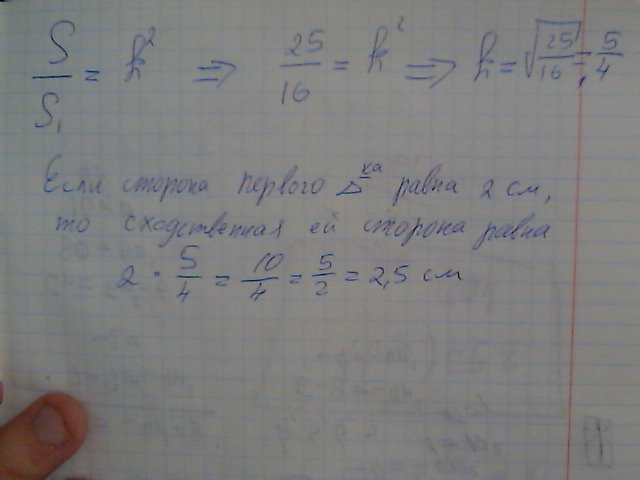 S/S₁ = k² ⇒ 25/16 = k² ⇒ k = √(25/16) = 5/4
Если сторона первого △ка равна 2 см,
то сходственная ей сторона равна
2 · 5/4 = 10/4 = 5/2 = 2,5 см